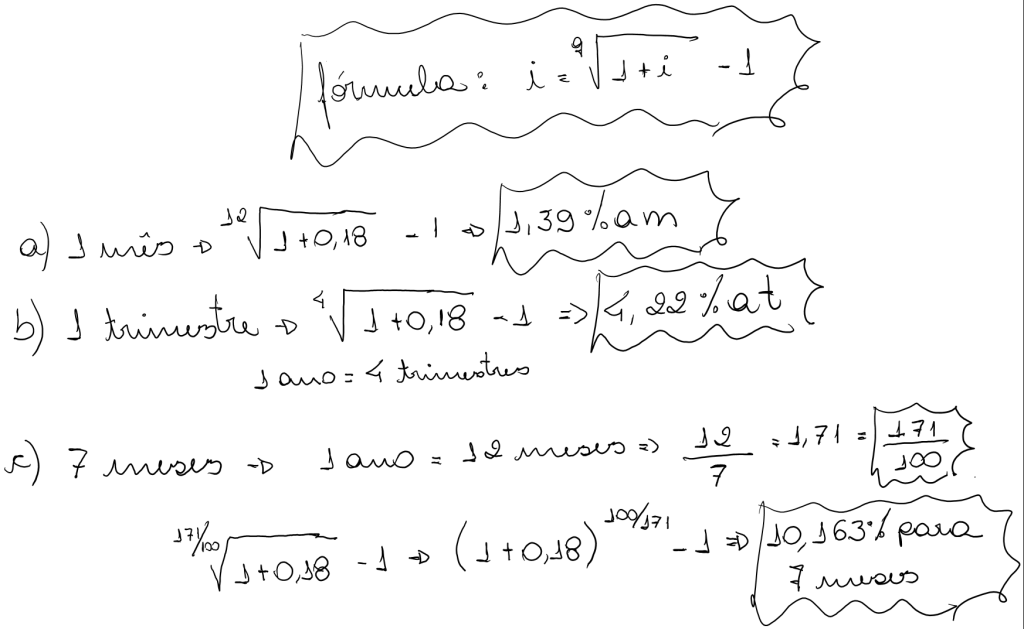 fórmula: i = ⁹√1+i - 1
a) 1 mês → ¹²√1+0,18 - 1 ⇒ 1,39% am
b) 1 trimestre → ⁴√1+0,18 - 1 => 4,22% at
1 ano = 4 trimestres
c) 7 meses → 1 ano = 12 meses => 12/7 = 1,71 = 171/100
171/100√1+0,18 - 1 ⇒ (1+0,18)^100/171 - 1 ⇒ 10,163% para
7 meses